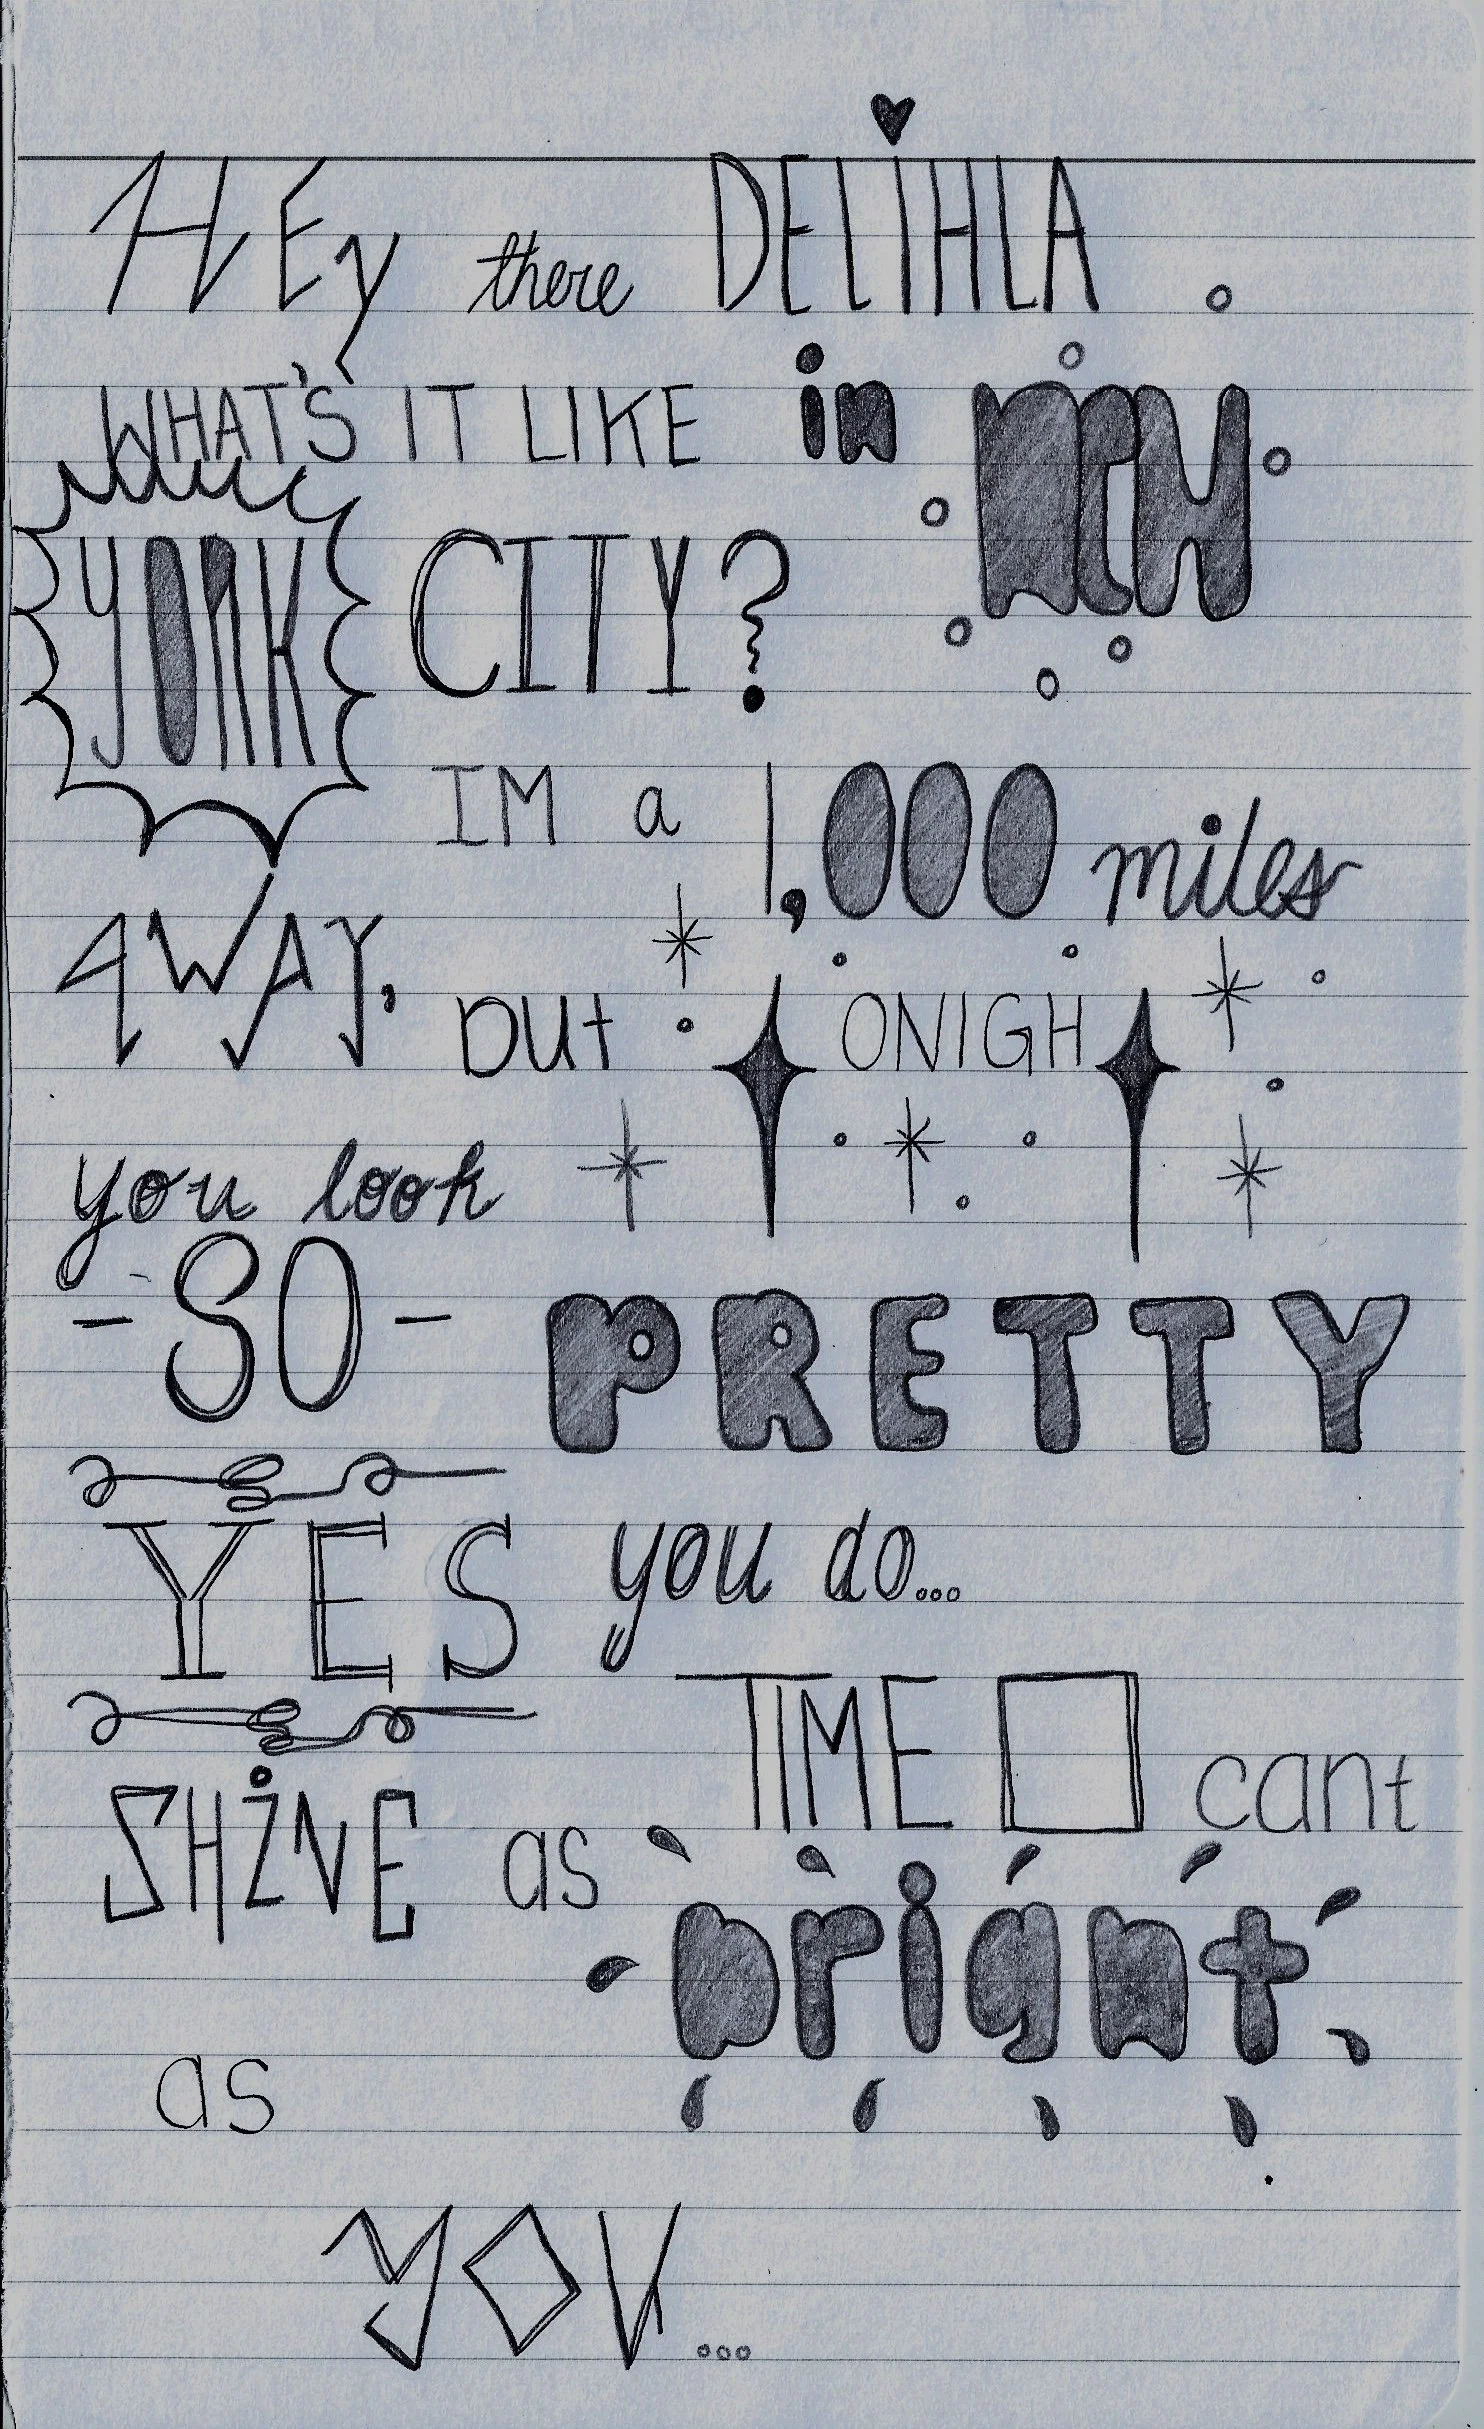 HEy there DELiHLA
WHAT'S IT LIKE in NEW
YORK CITY?
IM a 1,000 miles
AWAY, but TONIGHT
you look
-SO- PRETTY
YES you do...
TIME □ cant
SHiNE as bright
as
YOU...